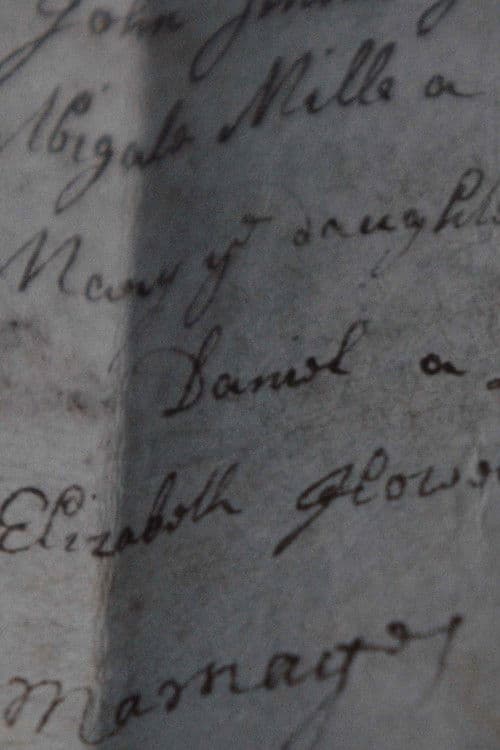 John
Abigale Mills a
Mary yᵉ daught
Daniel a
Elizabeth Glower
Marriages